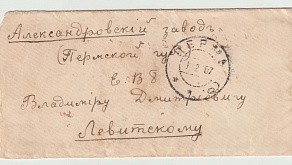 Александровскій заводъ
(Пермской гу
Е. В Б
Владиміру Дмитріевичу
Левитскому
ПЕРМЬ